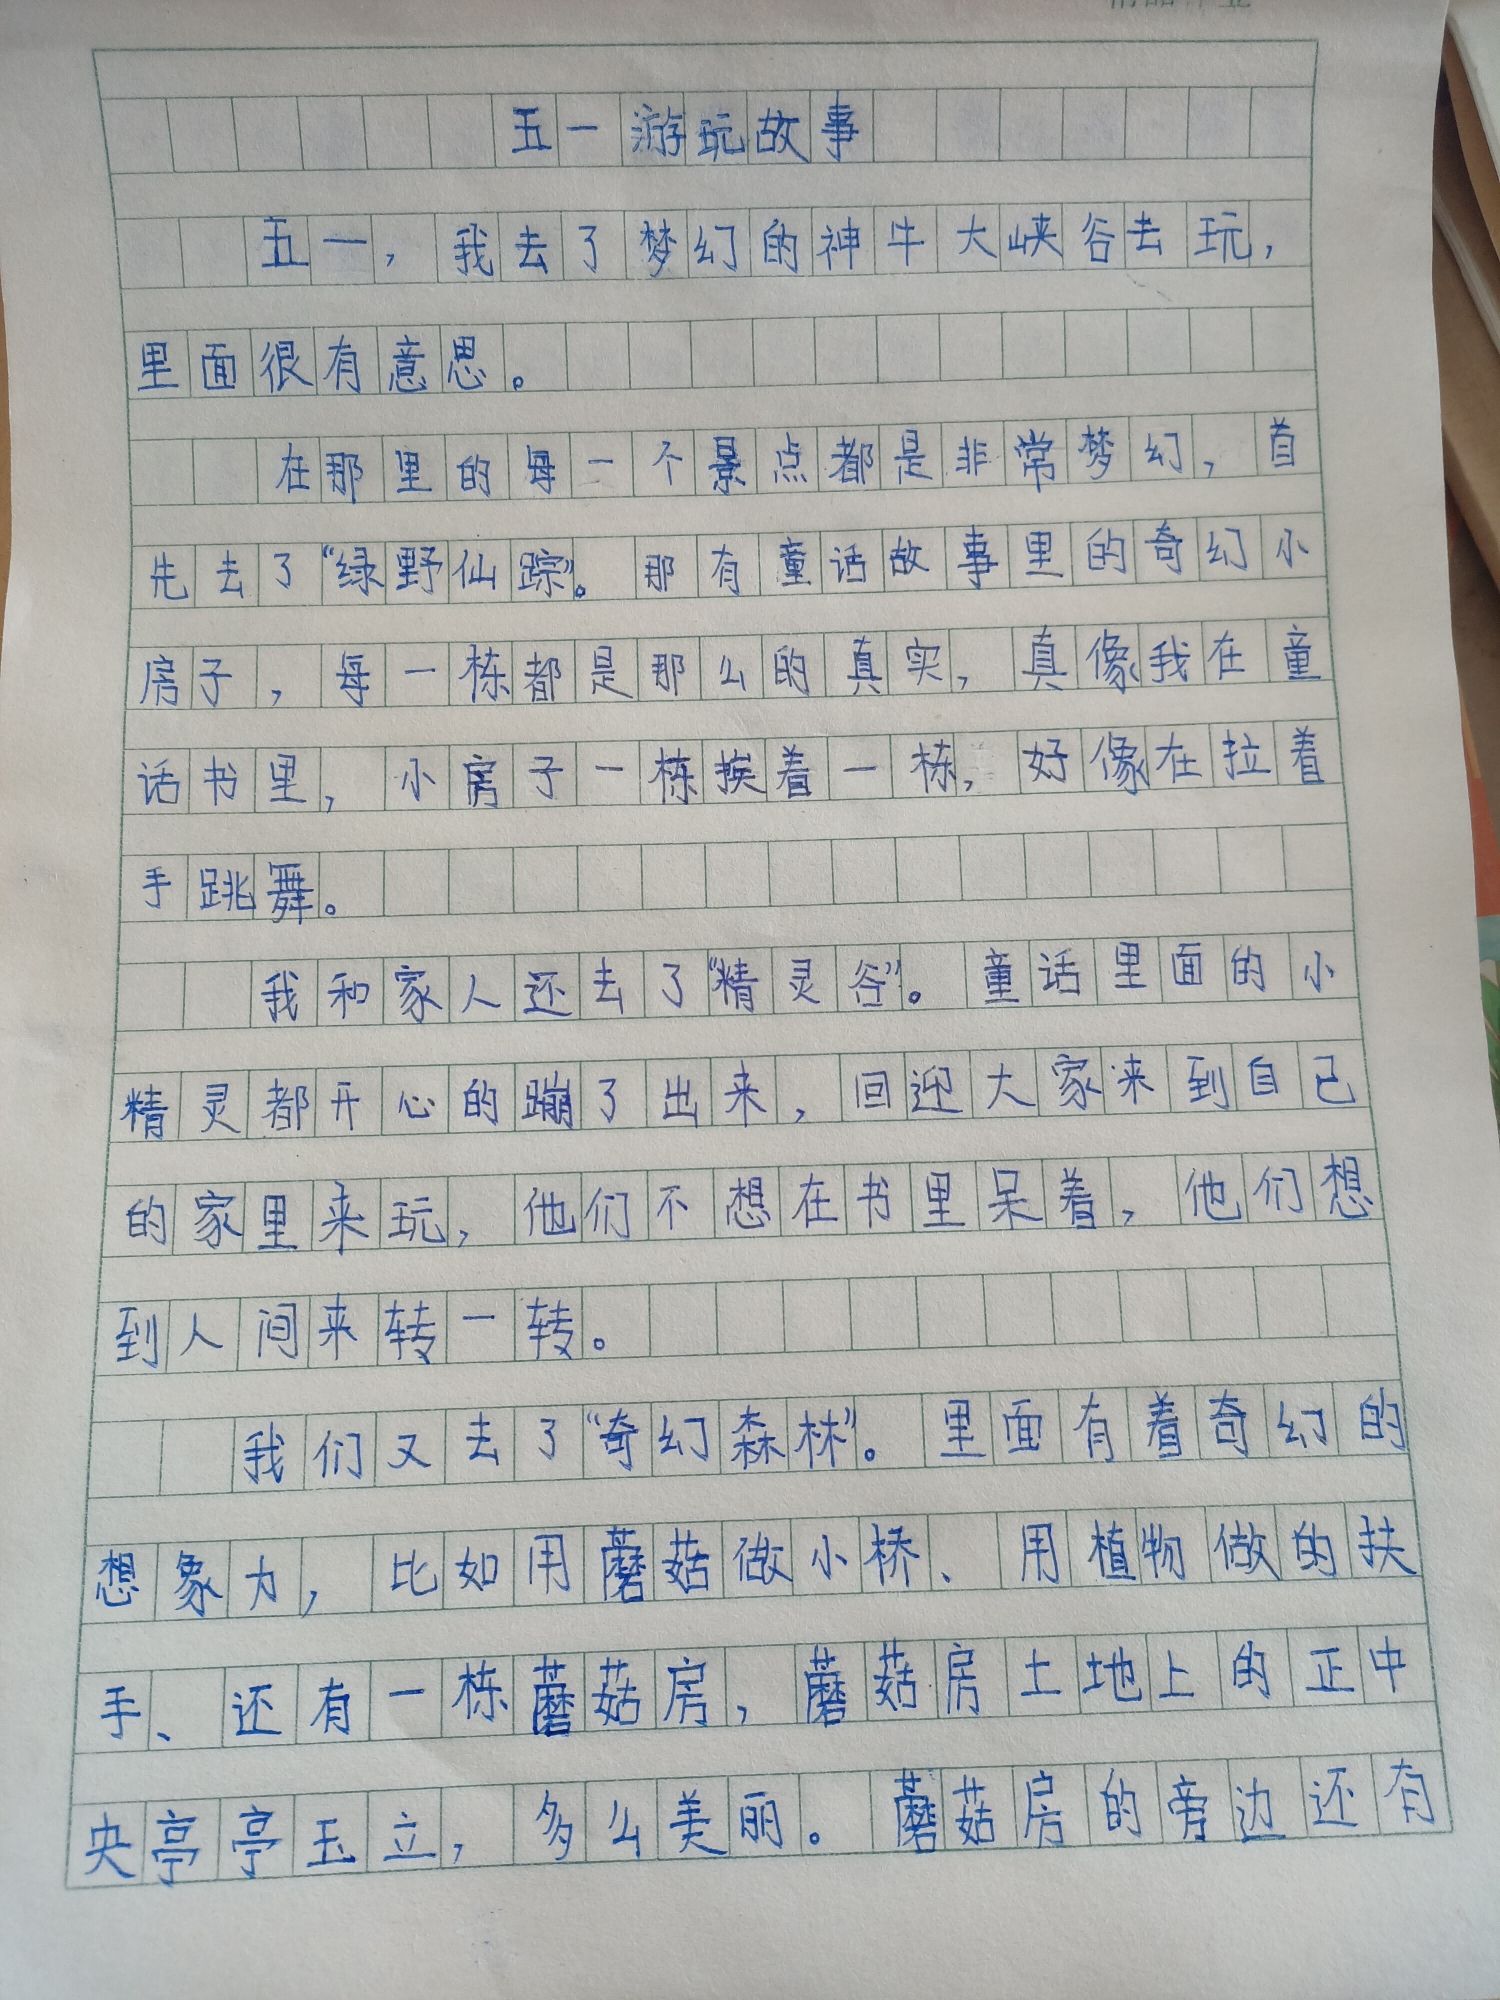 五一游玩故事
五一，我去了梦幻的神牛大峡谷去玩，
里面很有意思。
在那里的每一个景点都是非常梦幻，首
先去了“绿野仙踪”。那有童话故事里的奇幻小
房子，每一栋都是那么的真实，真像我在童
话书里，小房子一栋挨着一栋，好像在拉着
手跳舞。
我和家人还去了“精灵谷”。童话里面的小
精灵都开心的蹦了出来，回迎大家来到自己
的家里来玩，他们不想在书里呆着，他们想
到人间来转一转。
我们又去了“奇幻森林”。里面有着奇幻的
想象力，比如用蘑菇做小桥、用植物做的扶
手、还有一栋蘑菇房，蘑菇房土地上的正中
央亭亭玉立，多么美丽。蘑菇房的旁边还有